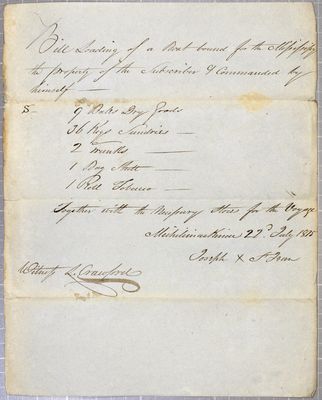 Bill Loading of a Boat bound for the Mississippy
the property of the Subscriber & Commanded by
himself —
S— 9 Bales Dry Goods
36 Kegs Sundries —
2 Trunks —
1 Bag —
1 Roll Tobacco —
Together with the Nessary Stores for the Voyage
Michilimackinac 22d July 1805
Joseph X St Jean
Witness L. Crawford